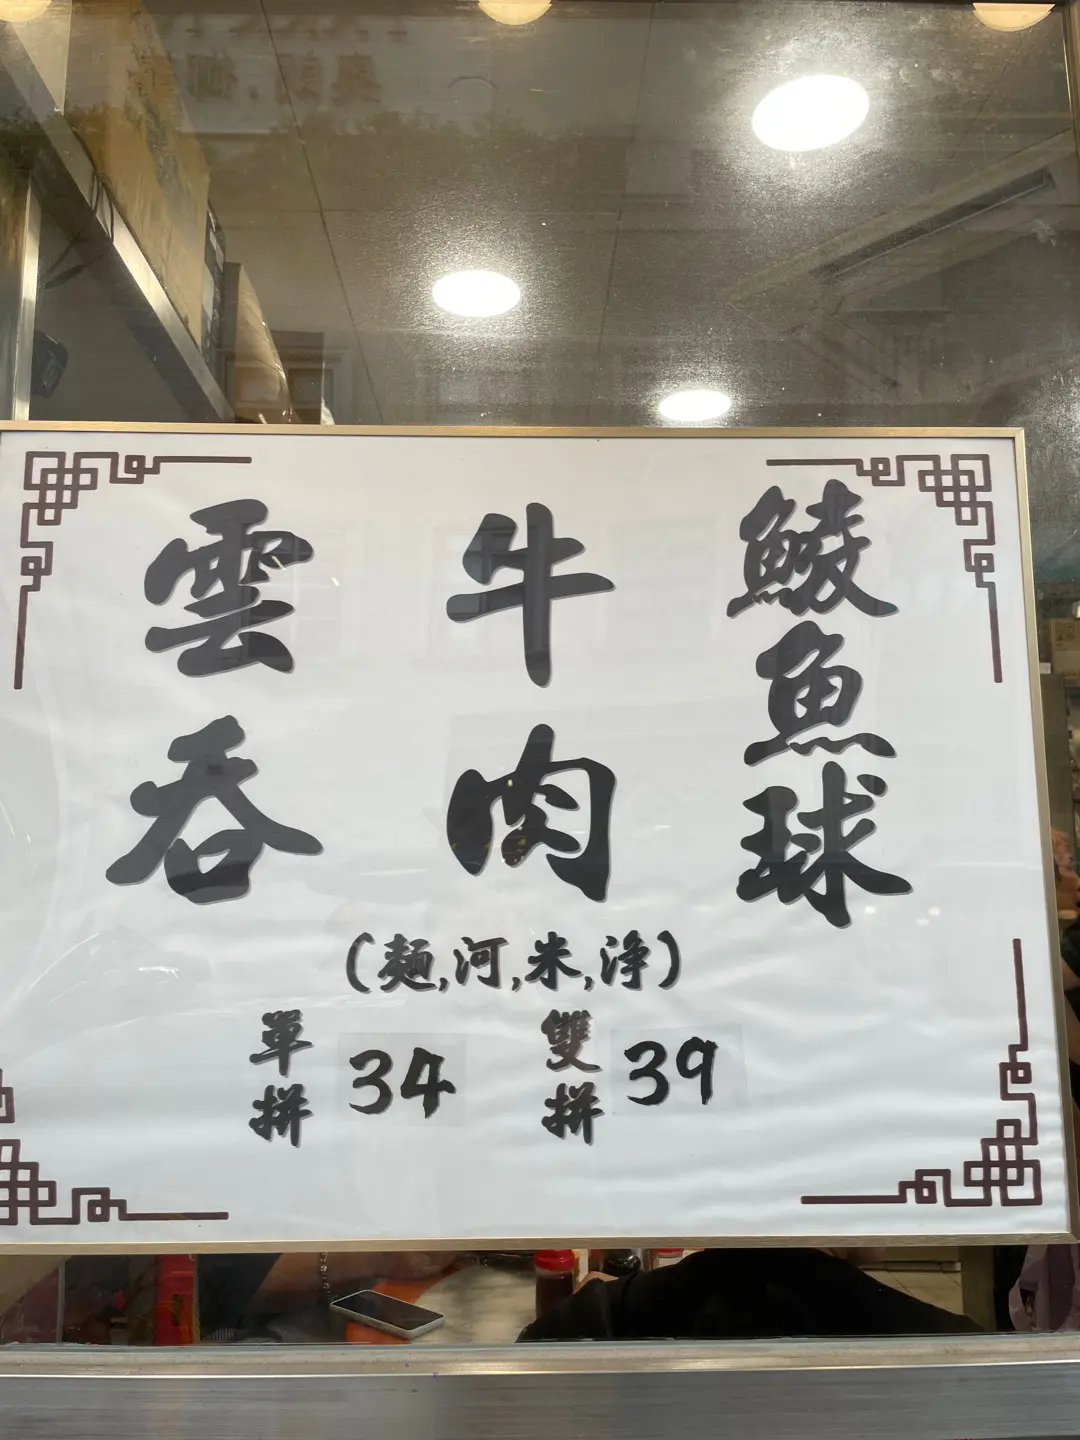 鯪魚球
牛肉
雲吞
(麵,河,米,淨)
單拼 34
雙拼 39